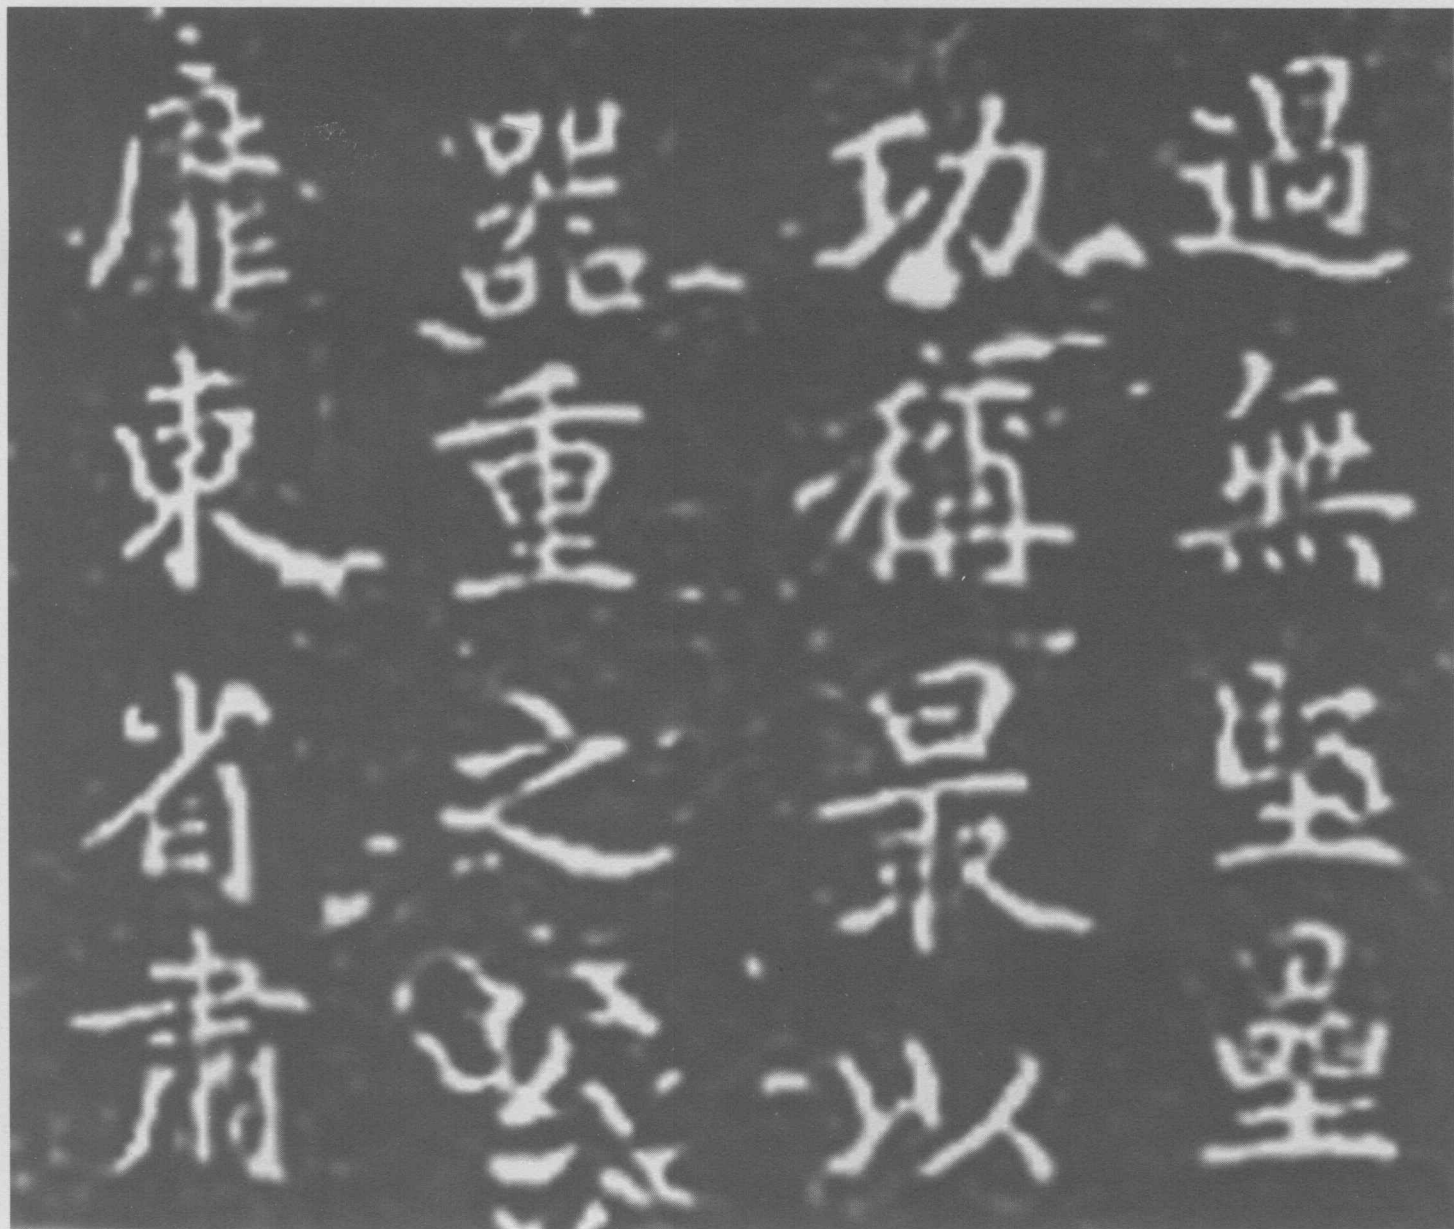 過無堅壘
功稱最以
器重之
東省肅